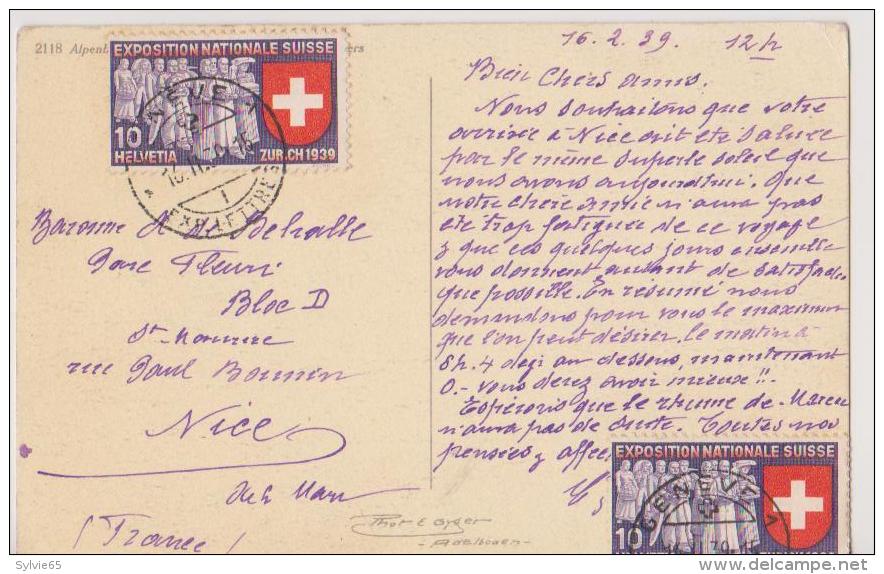 2118 Alpenb
EXPOSITION NATIONALE SUISSE
10
HELVETIA ZURICH 1939
GENEVE 1
EXP. LETTRES
16.2.39. 12h
Bien Chers amis.
Nous souhaitons que votre
arrivée à Nice ait été saluée
par le même superbe soleil que
nous avons aujourd'hui. Que
notre chère amie n'aura pas
été trop fatiguée de ce voyage
& que ces quelques jours ensemble
vous donnent autant de satisfac.
que possible. En résumé nous
demandons pour vous le maximum
que l'on peut désirer. Le matin à
8h. 4 degr au dessous, maintenant
0.- vous devez avoir mieux!!.
Espérons que le rhume de
n'aura pas de suite. Toutes nos
pensées & affec
Baronne Dehalle
Parc Fleuri
Bloc D
St-Maurice
rue Paul Bounin
Nice
Alp. Mar.
(France)
Adelboden
EXPOSITION NATIONALE SUISSE
10
GENEVE 1
Sylvie65
delcampe.net